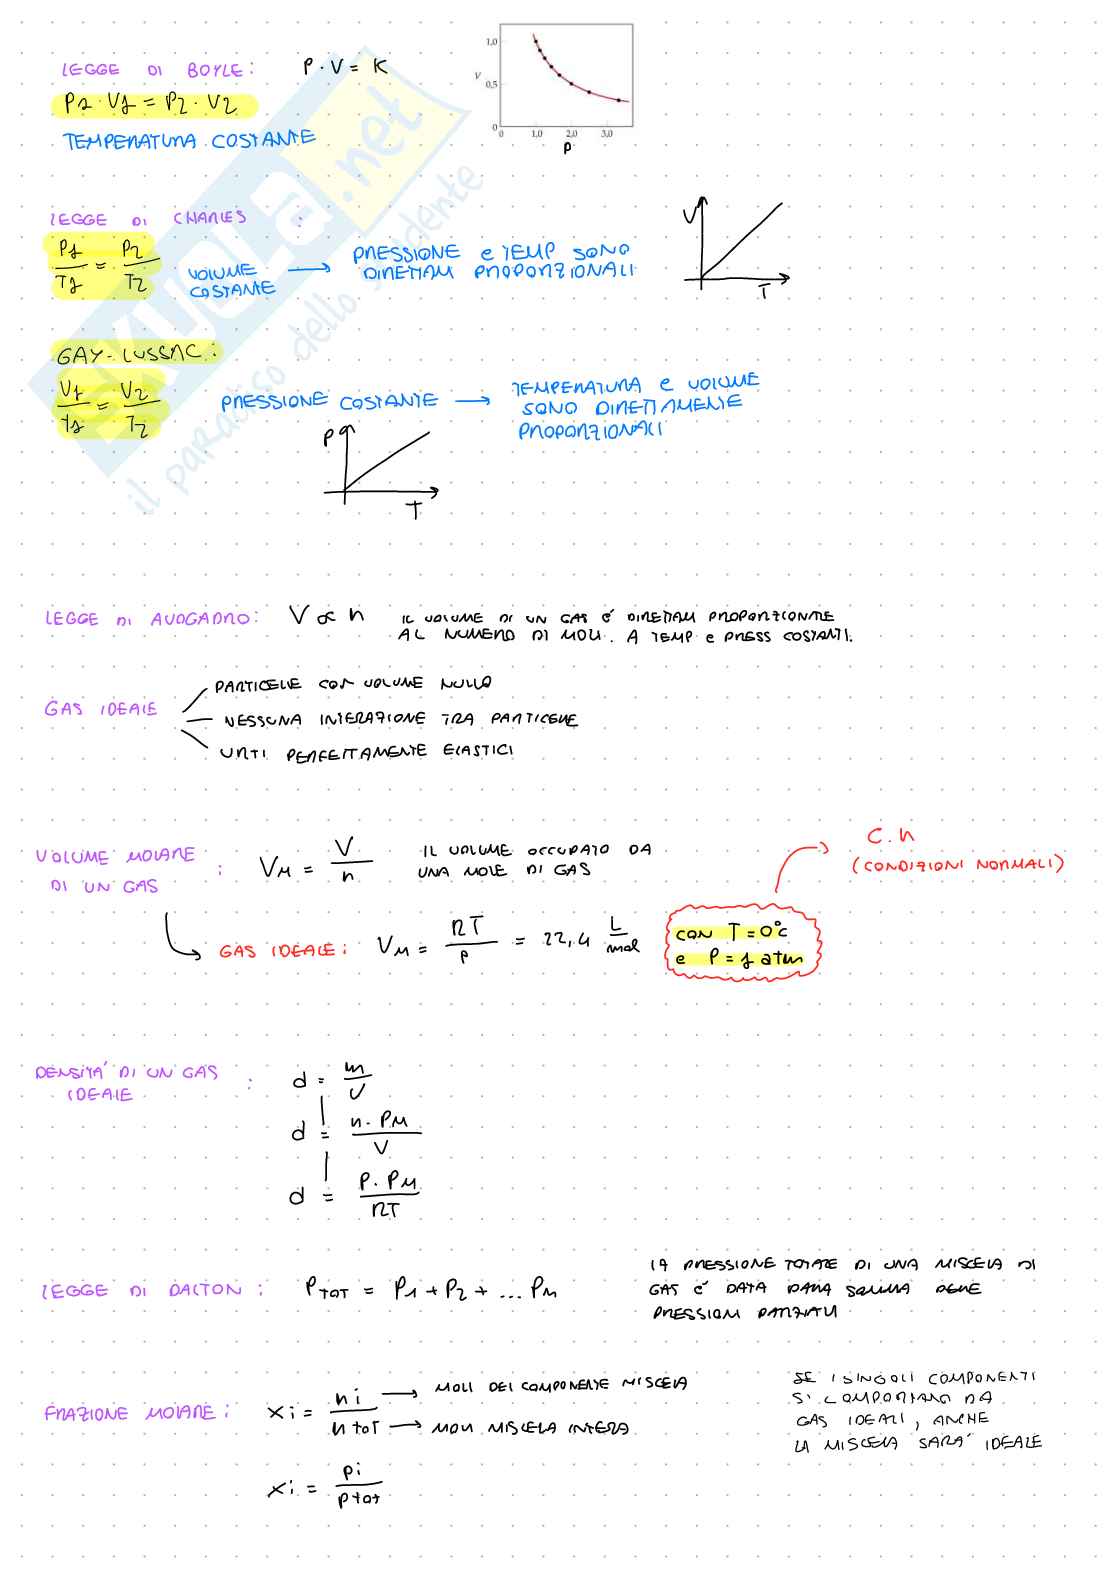 LEGGE DI BOYLE: P · V = K
P1 · V1 = P2 · V2
TEMPERATURA COSTANTE
1,0
V
0,5
0
0 1,0 2,0 3,0
P
LEGGE DI CHARLES :
P1/T1 = P2/T2
VOLUME COSTANTE → PRESSIONE e TEMP SONO
DIRETTAM PROPORZIONALI
V
T
GAY-LUSSAC:
V1/T1 = V2/T2
PRESSIONE COSTANTE → TEMPERATURA e VOLUME
SONO DIRETTAMENTE
PROPORZIONALI
P
T
SKUOLA.net
il paradiso dello studente
LEGGE DI AVOGADRO: V ∝ n IL VOLUME DI UN GAS É DIRETTAM PROPORZIONALE
AL NUMERO DI MOLI. A TEMP e PRESS COSTANTI.
PARTICELLE CON VOLUME NULLO
GAS IDEALE
NESSUNA INTERAZIONE TRA PARTICELLE
URTI PERFETTAMENTE ELASTICI
C.n
(CONDIZIONI NORMALI)
VOLUME MOLARE
DI UN GAS : VM = V/n IL VOLUME OCCUPATO DA
UNA MOLE DI GAS
GAS IDEALE: VM = RT/P = 22,4 L/mol
CON T = 0°C
e P = 1 atm
DENSITA' DI UN GAS
IDEALE : d = m/V
d = n · PM/V
d = P · PM/RT
LEGGE DI DALTON : PTOT = P1 + P2 + ... Pn
LA PRESSIONE TOTALE DI UNA MISCELA DI
GAS É DATA DALLA SOMMA DELLE
PRESSIONI PARZIALI
FRAZIONE MOLARE: xi = ni/nTOT
→ MOLI DEL COMPONENTE MISCELA
→ MOLI MISCELA INTERA
SE I SINGOLI COMPONENTI
SI COMPORTANO DA
GAS IDEALI, ANCHE
LA MISCELA SARA' IDEALE
xi = pi/ptot